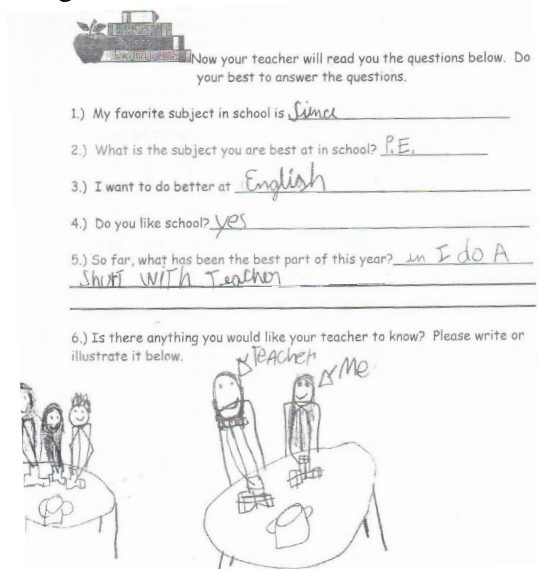 Now your teacher will read you the questions below. Do
your best to answer the questions.
1.) My favorite subject in school is Since
2.) What is the subject you are best at in school? P.E.
3.) I want to do better at English
4.) Do you like school? yes
5.) So far, what has been the best part of this year? in I do A
Shurt WiTh Teacher
6.) Is there anything you would like your teacher to know? Please write or
illustrate it below.
TeAcher
Me